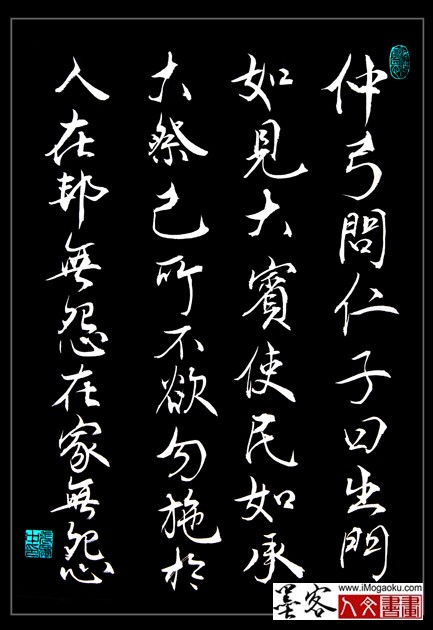 仲弓問仁子曰出門
如見大賓使民如承
大祭己所不欲勿施於
人在邦無怨在家無怨
www.iMogaoku.com
墨客
人文書畫